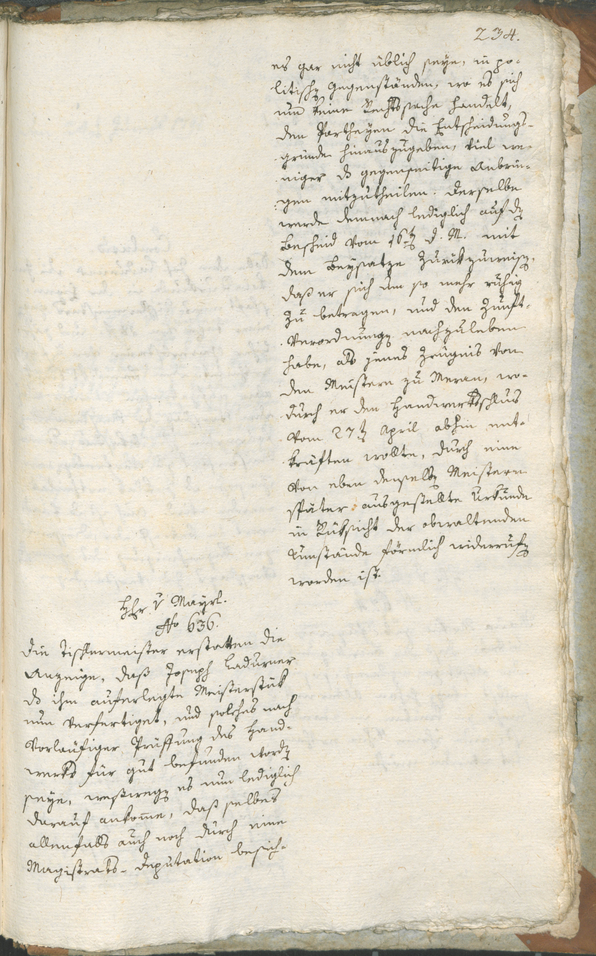 234.
es gar nicht üblich seye, in po-
litischen Gegenständen, wo es sich
um keine Rechtssache handelt,
den Partheyen die Entscheidungs-
gründe hinauszugeben, viel we-
niger die gegenseitige Anbrin-
gen mitzutheilen. Derselbe
werde demnach lediglich auf den
Bescheid vom 16ten d. M. mit
dem Beysatze zurückzuweisen,
daß er sich um so mehr ruhig
zu betragen, und den Zunft-
verordnungen nachzuleben
habe, als jenes Zeugnis von
den Meistern zu Meran, wo-
durch er den Handwerksschluß
vom 27ten April abhin ent-
kräften wollte, durch eine
von eben denselben Meistern
später ausgestellte Urkunde
in Rücksicht der obwaltenden
Umstände förmlich widerrufen
worden ist.
Hr. v Mayrl.
No 636.
Die Tischlermeister erstatten die
Anzeige, daß Joseph Ladurner
das ihm auferlegte Meisterstück
nun verfertiget, und solches nach
vorläufiger Prüfung des Hand-
werks für gut befunden worden
seye, weßwegen es nun lediglich
darauf ankome, daß selbes
allenfalls auch noch durch eine
Magistrats-Deputation besich-